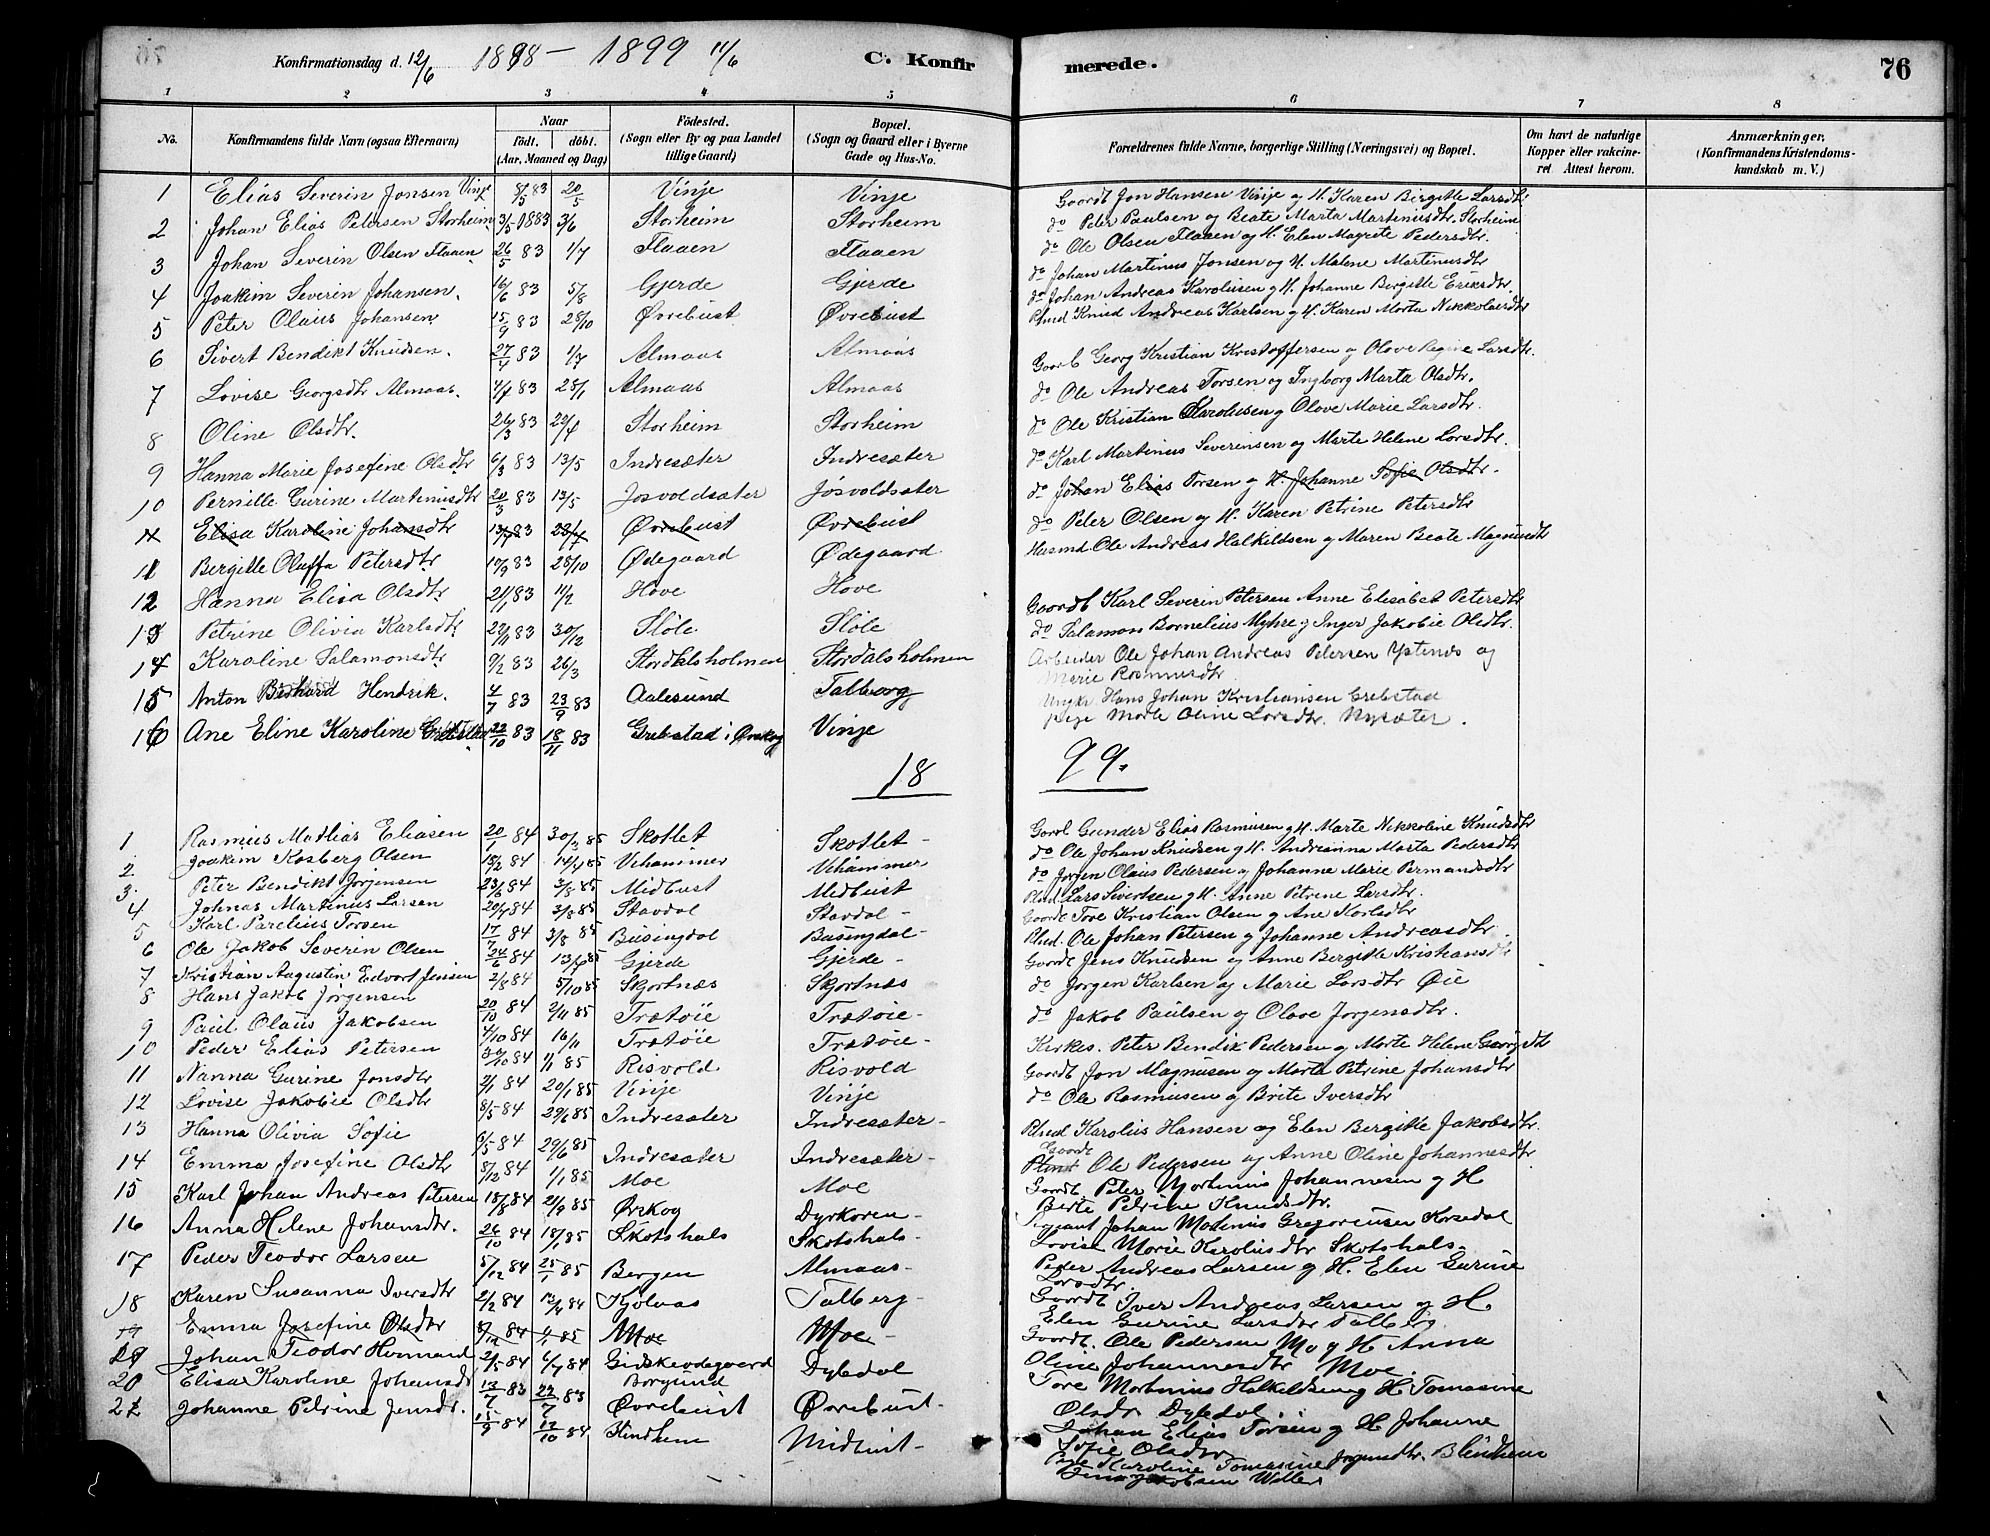 Konfirmationsdag d. 12/6 1898 — 1899 11/6 C. Konfirmerede. 76
1 2 3 4 5 6 7 8
No. Konfirmandens fulde Navn (ogsaa Efternavn) Naar födt. döbt. (Aar, Maaned og Dag) Födested. (Sogn eller By og paa Landet tillige Gaard) Bopæl. (Sogn og Gaard eller i Byerne Gade og Hus-No. Forældrenes fulde Navne, borgerlige Stilling (Næringsvei) og Bopæl. Om havt de naturlige Kopper eller vakcineret. Attest herom. Anmærkninger, (Konfirmandens Kristendomskundskab m. V.)
1 Elias Severin Jonsen Vinje 8/5 83 20/5 Vinje Vinje Gaardb Jon Hansen Vinje og H. Karen Birgitte Larsdtr
2 Johan Elias Petersen Storheim 3/5 1883 3/6 Storheim Storheim do Peter Paulsen og Beate Marta Martinusdtr. Storheim
3 Johan Severin Olsen Flaaen 26/5 83 1/7 Flaaen Flaaen do Ole Olsen Flaaen og H. Elen Magrete Pedersdtr.
4 Joakim Severin Johansen. 16/6 83 5/8 Gjerde Gjerde do Johan Martinus Jonsen og H. Malene Martinusdtr
5 Peter Olaus Johansen 15/9 83 28/10 Øvrebust Øvrebust do Johan Andreas Karolusen og H. Johanne Bergitte Eriksdtr.
6 Sivert Bendikt Knudsen. 27/4 83 1/7 Almaas Almaas Plmd Knud Andreas Karlsen og H. Karen Marta Nikkolaisdtr
7 Lovise Georgsdtr Almaas. 83 Almaas Almaas Gaardb Georg Kristian Kristoffersen og Olave Regine Larsdtr.
8 Oline Olsdtr. 26/3 83 29/4 Storheim Storheim do Ole Andreas Torsen og Ingborg Marta Olsdtr.
9 Hanna Marie Josefine Olsdtr 6/3 83 13/5 Indresæter Indresæter do Ole Kristian Karolusen og Olave Marie Larsdtr.
10 Pernille Gurine Martinusdtr 20/3 83 13/5 Josvoldsæter Jøsvoldsæter do Karl Martinus Severinsen og Marte Helene Larsdtr.
11 Elisa Karoline Johansdtr 13/7 83 22/7 Øvrebust Øvrebust do Johan Elias Torsen og H. Johanne Sofie Olsdtr.
11 Bergitte Oluffa Petersdtr 17/9 83 28/10 Ødegaard Ødegaard do Peter Olsen og H. Karen Petrine Petersdtr
12 Hanna Elisa Olsdtr. 21/1 83 11/2 Hove Hove Husmd Ole Andreas Halkildsen og Maren Beate Magnusdtr
13 Petrine Olivia Karlsdtr. 83 30/12 Sløle Sløle Gaardb Karl Severin Petersen Anne Elisabet Petersdtr
14 Karoline Salamonsdtr 9/2 83 26/3 Stordalsholmen Stordalsholmen do Salamon Bornelius Myhre og Inger Jakobie Olsdtr.
15 Anton Hendrik. 4/7 83 23/9 83 Aalesund Talberg Arbeider Ole Johan Andreas Petersen Ystenæs og
Marie Rasmusdtr
16 Ane Eline Karoline Grebstad 22/10 83 18/11 83 Grebstad i Ørskog Vinje Ungkr Hans Johan Kristiansen Grebstad
pige Marte Oline Larsdtr. Nysæter.
18 99.
1 Rasmus Mathias Eliasen 20/1 84 30/3 85 Skotlet Skotlet Gaardb Gunder Elias Rasmusen og H. Marte Nikkoline Knudsdtr
2 Joakim Kosberg Olsen 15/2 84 14/4 85 Vehammer Vehammer do Ole Johan Knudsen og H. Andrianna Marta Pedersdtr
3. Peter Bendikt Jørgensen 23/6 84 3/8 85 Midbust Midbust do Jørgen Olaus Pedersen og Johanne Marie Permandsdtr
4 Johnas Martinus Larsen 20/7 84 3/8 85 Stavdal Stavdal Plmd Lars Sivertsen og H. Anne Petrine Larsdtr.
5 Karl Parelius Torsen 17/7 84 3/8 85 Busingdal Busingdal Gaardb Tore Kristian Olsen og Ane Karlsdtr
6 Ole Jakob Severin Olsen 24/6 84 13/4 85 Gjerde Gjerde Plmd. Ole Johan Petersen og Johanne Andreasdtr.
7 Kristian Augustin Edvart Jensen 2/8 84 5/10 85 Skjortnæs Skjortnæs Gaardb Jens Knudsen og Anne Bergitte Kristiansdtr
8 Hans Jakob Jørgensen 20/10 84 2/11 85 Trætøie Trætøie do Jørgen Karlsen og Marie Larsdtr Øie
9 Paul Olaus Jakobsen 4/10 84 16/11 Trætøie Trætøie do Jakob Paulsen og Olave Jørgensdtr.
10 Peder Elias Petersen 84 1/1 85 Risvold Risvold Kirkes. Peter Bendik Pedersen og Marte Helene Georgsdtr
11 Nanna Gurine Jonsdtr 2/1 84 20/1 85 Vinje Vinje Gaardb Jon Magnusen og Marta Petrine Johansdtr
12 Lovise Jakobie Olsdtr 8/5 84 29/6 85 Indresæter Indresæter do Ole Rasmusen og Brite Iversdtr
13 Hanna Olivia Sofie 6/5 84 29/6 85 Indresæter Indresæter Plmd Karolus Hansen og Elen Bergitte Jakobsdtr.
14 Emma Josefine Olsdtr 8/12 84 1/1 85 Moe Moe Gaardb Ole Pedersen og Anne Oline Johannesdtr
15 Karl Johan Andreas Petersen 18/8 84 21/9 85 Ørskog Dyrkoren Gaardb. Peter Martinus Johannesen og H
Berte Petrine Knudsdtr.
16 Anna Helene Johansdtr. 26/10 84 18/1 85 Skotshals Skotshals Sergeant Johan Matinus Gregoriusen Korsedal
Lovise Marie Karolusdtr Skotshals
17 Peder Teodor Larsen 5/12 84 25/1 85 Bergen Almaas Peder Andreas Larsen og H. Elen Gurine
Larsdtr.
18 Karen Susanna Iversdtr 2/2 84 13/4 84 Kjølaas Talberg Gaardb Iver Andreas Larsen og H.
Elen Gurine Larsdtr Talberg.
19 Emma Josefine Olsdtr 8/12 84 1/1 85 Moe Moe Gaardb. Ole Pedersen Mo og H Anna
Oline Johannesdtr Moe
Johan Teodor Hermand 2/5 84 6/7 84 Gidskeodegaard Borgund Dyledal Tore Martinus Halkildsen og H Tomasine
Olsdtr Dyledal
20 Elisa Karoline Johansd 13/7 83 22/7 83 Øvrebust Øvrebust Johan Elias Torsen og H Johanne
Sofie Olsdtr
21 Johanne Petrine Jensdtr. 15/9 84 12/10 84 Blindheim Midbust Pige Karoline Tomasine Jogmundtr. Blindheim